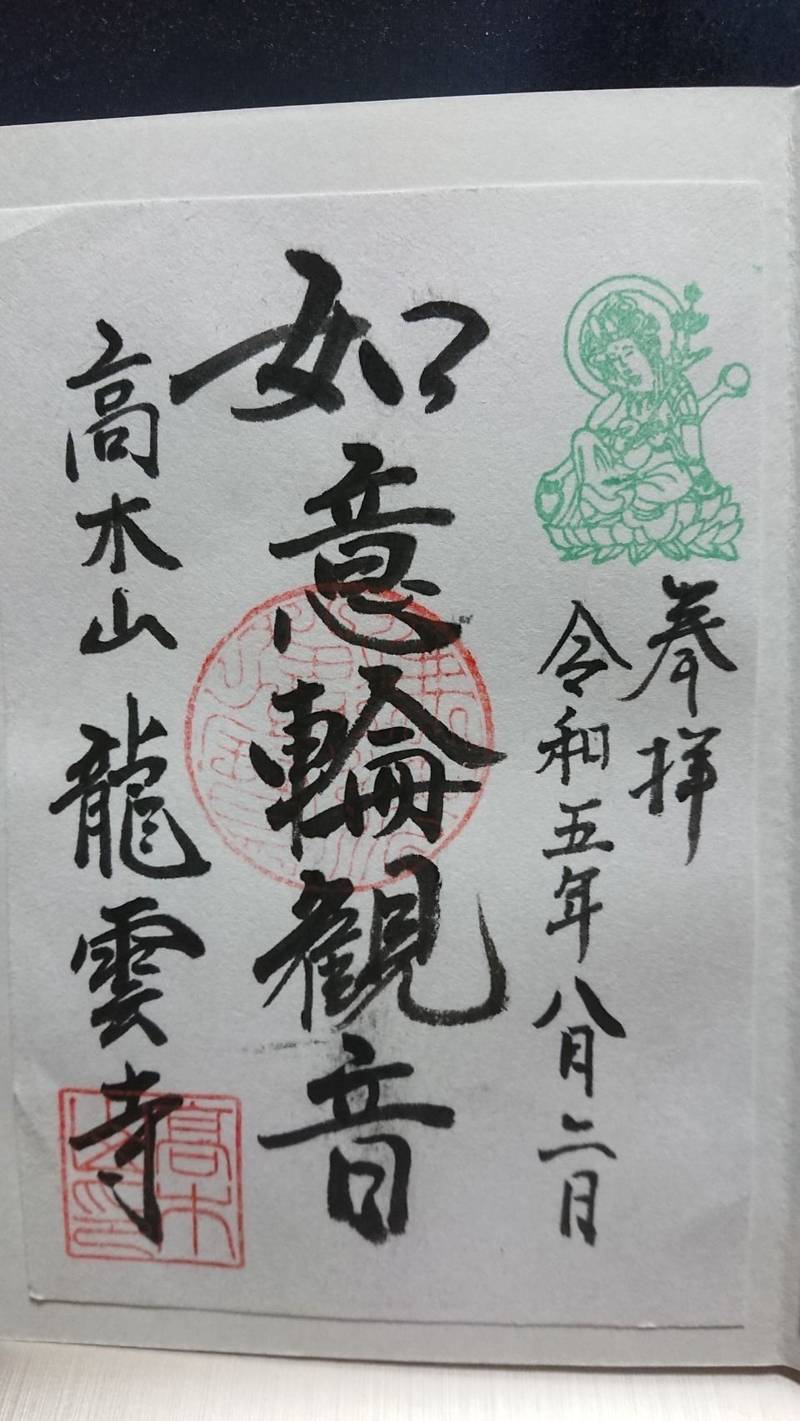 奉拝
令和五年八月二日
如意輪観音
高木山 龍雲寺
高木
山印